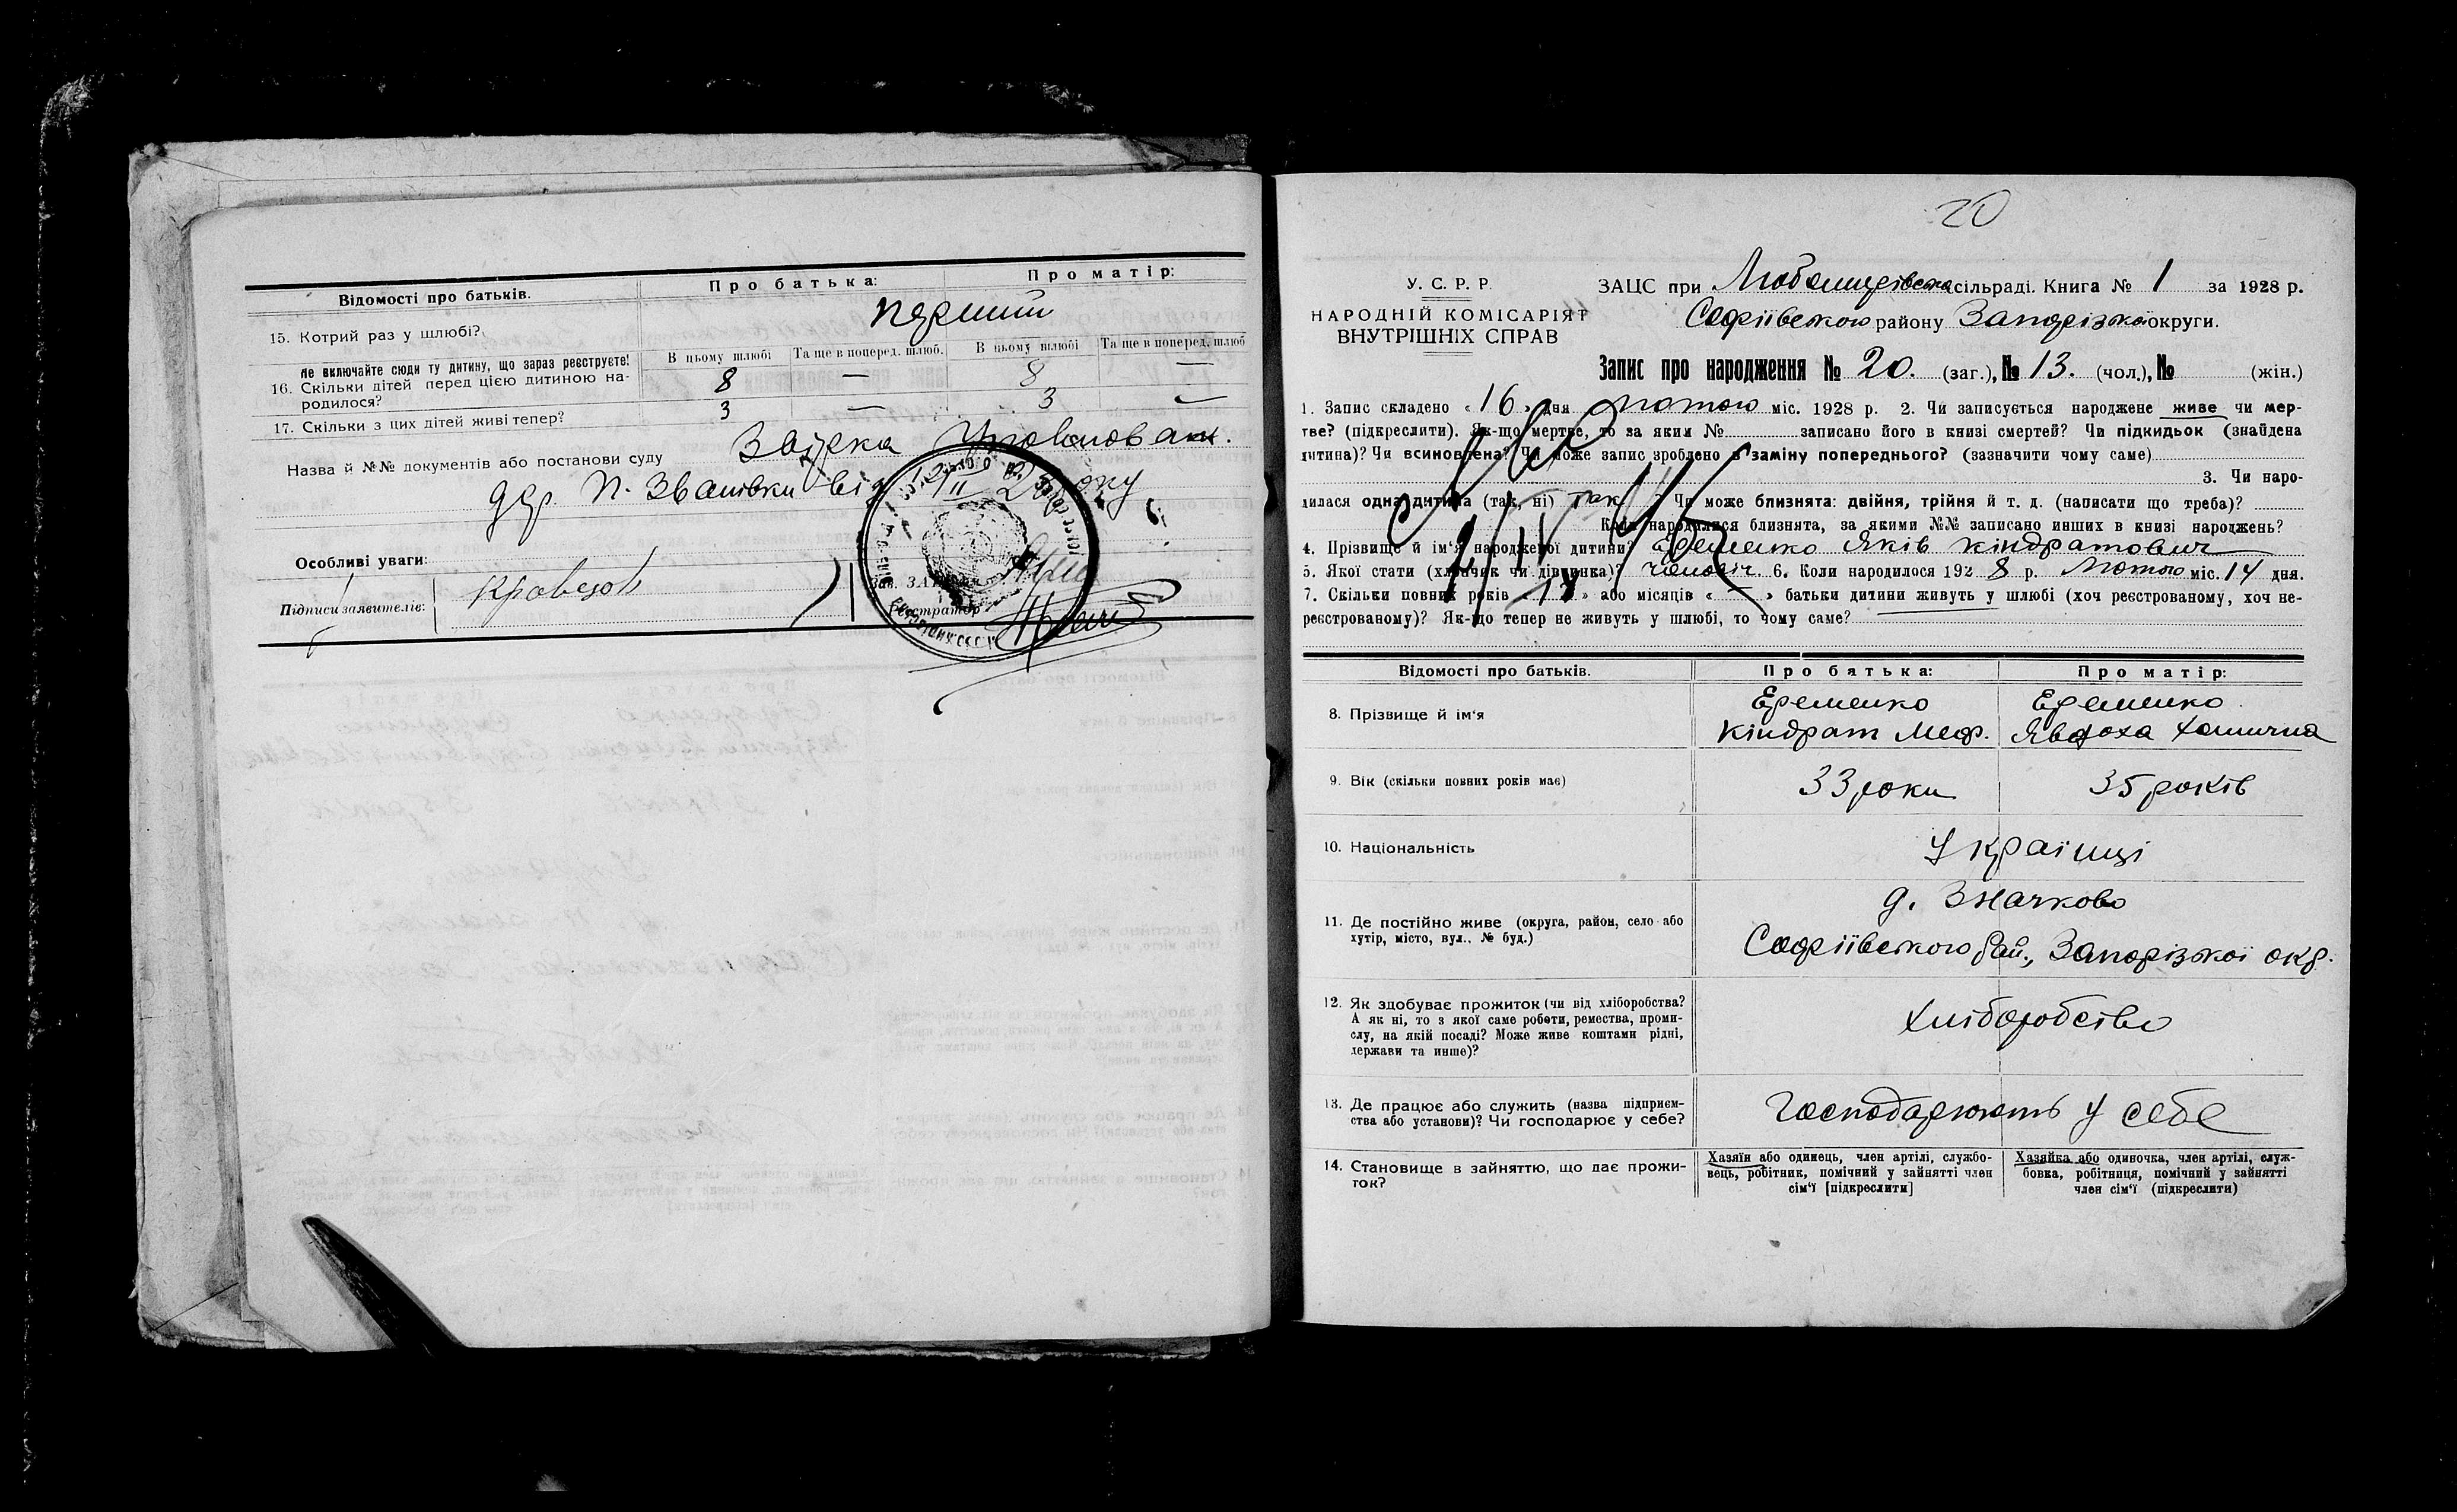 Відомості про батьків. Про батька: Про матір:
15. Котрий раз у шлюбі? перший
В цьому шлюбі Та ще в поперед. шлюб. В цьому шлюбі Та ще в поперед. шлюб
Не включайте сюди ту дитину, що зараз реєструєте!
16. Скільки дітей перед цією дитиною на- 8 — 8 —
родилося?
17. Скільки з цих дітей живі тепер? 3 — 3 —
Назва й №№ документів або постанови суду
від
Особливі уваги:
Підписи заявителів: Кравцов
Зав.
Реєстратор
20
У. С. Р. Р.
НАРОДНІЙ КОМІСАРІЯТ
ВНУТРІШНІХ СПРАВ
ЗАЦС при сільраді. Книга № 1 за 1928 р.
Софіївського району Запорізької округи.
Запис про народження № 20. (заг.), № 13. (чол.), № (жін.)
1. Запис складено «16» дня лютого міс. 1928 р. 2. Чи записується народжене живе чи мер-
тве? (підкреслити). Як-що мертве, то за яким № записано його в книзі смертей? Чи підкидьок (знайдена
дитина)? Чи всиновлена? Чи може запис зроблено в заміну попереднього? (зазначити чому саме)
3. Чи наро-
дилася одна дитина (так, ні) так ? Чи може близнята: двійня, трійня й т. д. (написати що треба)?
Коли народилися близнята, за якими №№ записано инших в книзі народжень?
4. Прізвище й ім'я народженої дитини? Еременко Яків Кіндратович
5. Якої статі (хлопчик чи дівчинка)? чоловіч. 6. Коли народилося 1928 р. Лютого міс. 14 дня.
7. Скільки повних років « » або місяців « — » батьки дитини живуть у шлюбі (хоч реєстрованому, хоч не-
реєстрованому)? Як-що тепер не живуть у шлюбі, то чому саме?
Відомості про батьків. Про батька: Про матір:
8. Прізвище й ім'я Еременко Кіндрат Меф. Еременко Явдоха
9. Вік (скільки повних років має) 33 роки 35 років
10. Національність Українці
11. Де постійно живе (округа, район, село або д. Значково
хутір, місто, вул., № буд.) Софіївського Рай., Запорізької окр.
12. Як здобуває прожиток (чи від хліборобства? Хліборобство
А як ні, то з якої саме роботи, ремества, проми-
слу, на якій посаді? Може живе коштами рідні,
держави та инше)?
13. Де працює або служить (назва підприєм- Господарюють у себе
ства або установи)? Чи господарює у себе?
14. Становище в зайняттю, що дає прожи-
ток?
Хазяїн або одинець, член артілі, службо-
вець, робітник, помічний у зайнятті член
сім'ї [підкреслити]
Хазяйка або одиночка, член артілі, служ-
бовка, робітниця, помічний у зайнятті
член сім'ї (підкреслити)